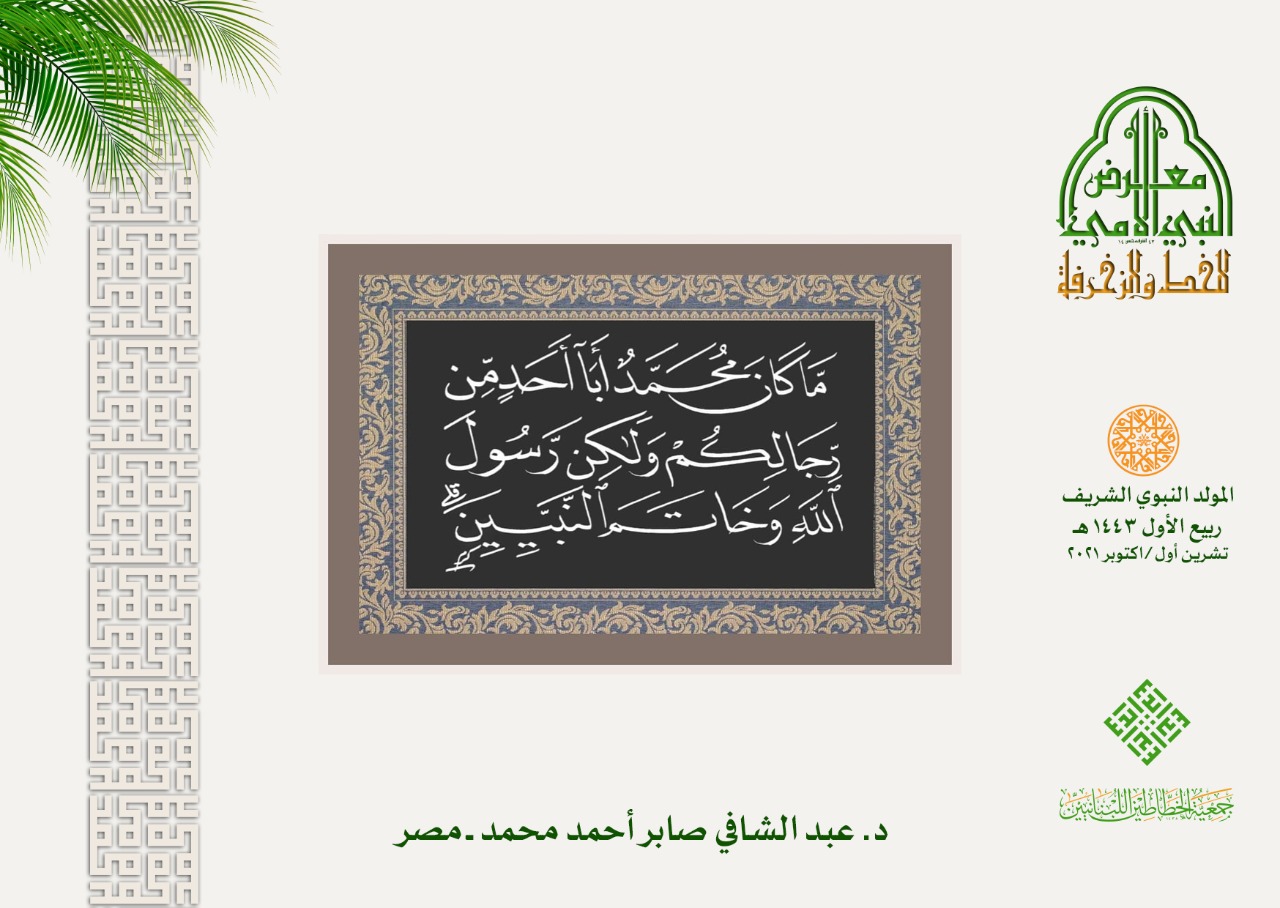 معرض
النبي الأمي ﷺ
للخط والزخرفة
مَّا كَانَ مُحَمَّدٌ أَبَآ أَحَدٍ مِّن
رِّجَالِكُمْ وَلَٰكِن رَّسُولَ
ٱللَّهِ وَخَاتَمَ ٱلنَّبِيِّـينَ ۗ
المولد النبوي الشريف
ربيع الأول ١٤٤٣ هـ
تشرين أول/اكتوبر ٢٠٢١
جمعية الخطاطين اللبنانيين
د. عبد الشافي صابر أحمد محمد ـ مصر